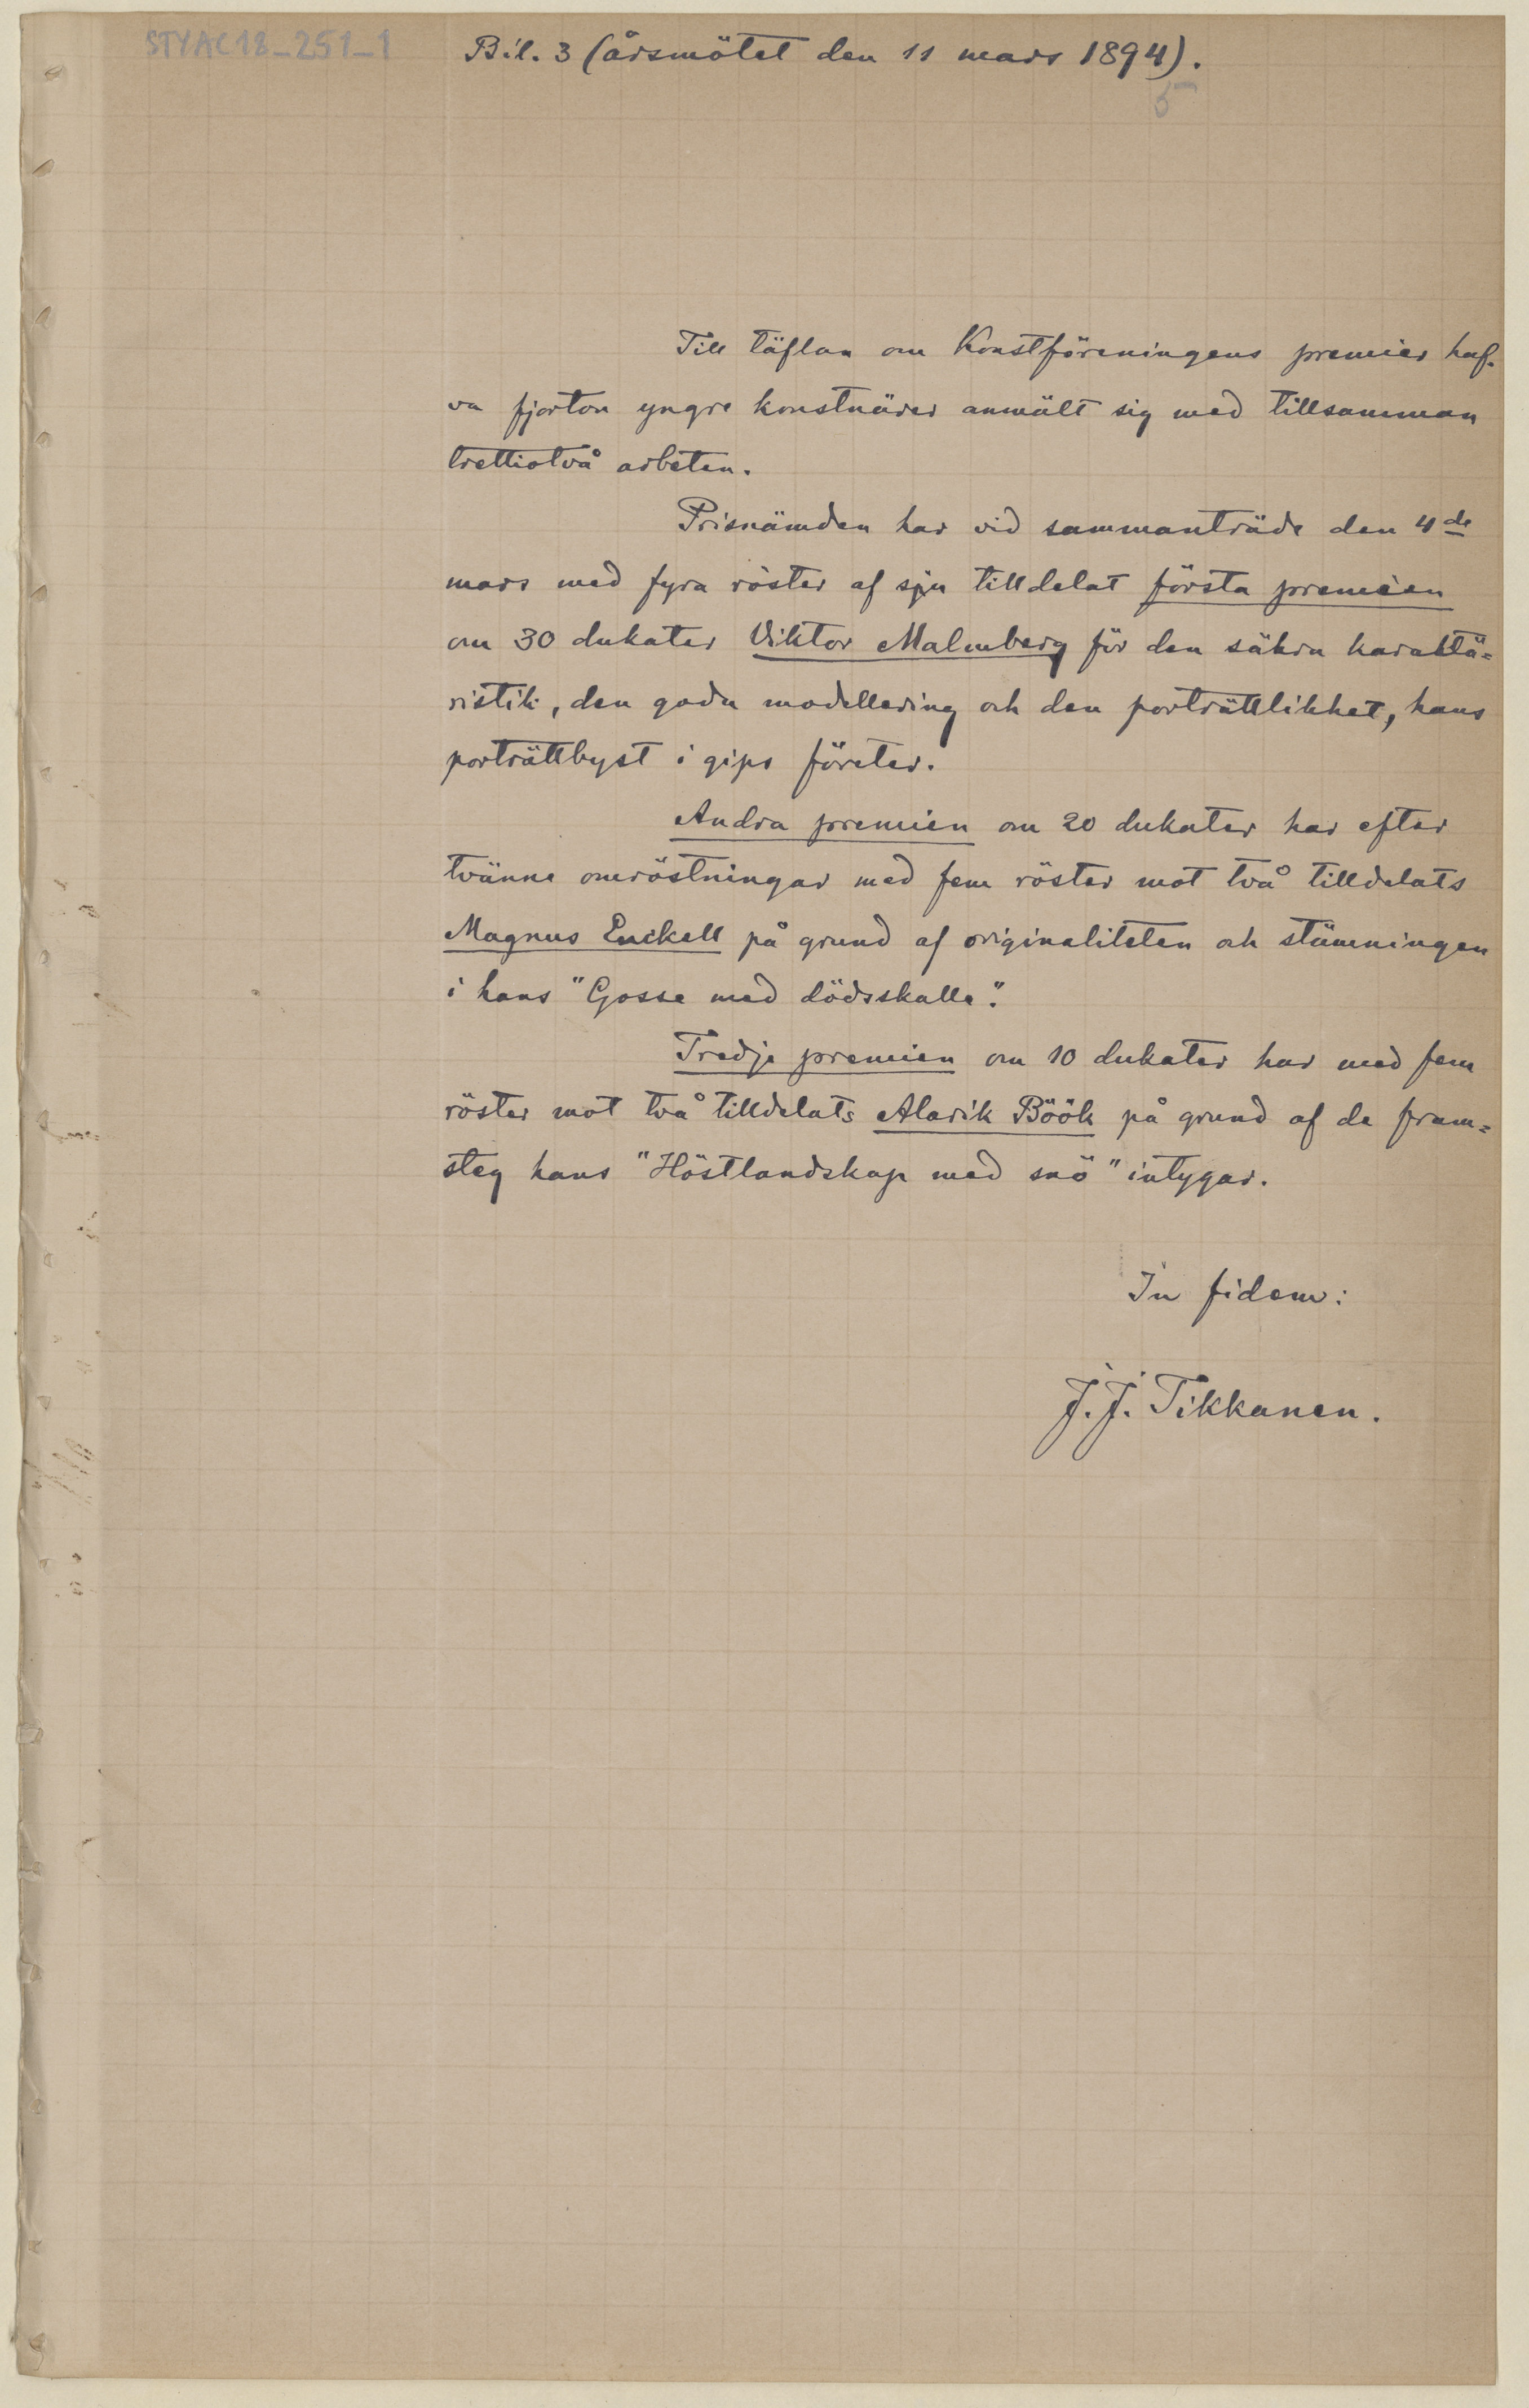 STYAC18_251_1
Bil. 3 (årsmötet den 11 mars 1894).
5
Till täflan om Konstföreningens premier haf-
va fjorton yngre konstnärer anmält sig med tillsamman
trettiotvå arbeten.
Prisnämden har vid sammanträde den 4de
mars med fyra röster af sju tilldelat första premien
om 30 dukater Viktor Malmberg för den säkra karaktä=
ristik, den goda modellering och den porträttlikhet, hans
porträttbyst i gips företer.
Andra premien om 20 dukater har efter
tvänne omröstningar med fem röster mot två tilldelats
Magnus Enckell på grund af originaliteten och stämningen
i hans "Gosse med dödskalle".
Tredje premien om 10 dukater har med fem
röster mot två tilldelats Alarik Böök på grund af de fram=
steg hans "Höstlandskap med snö" intygar.
In fidem:
J. J. Tikkanen.